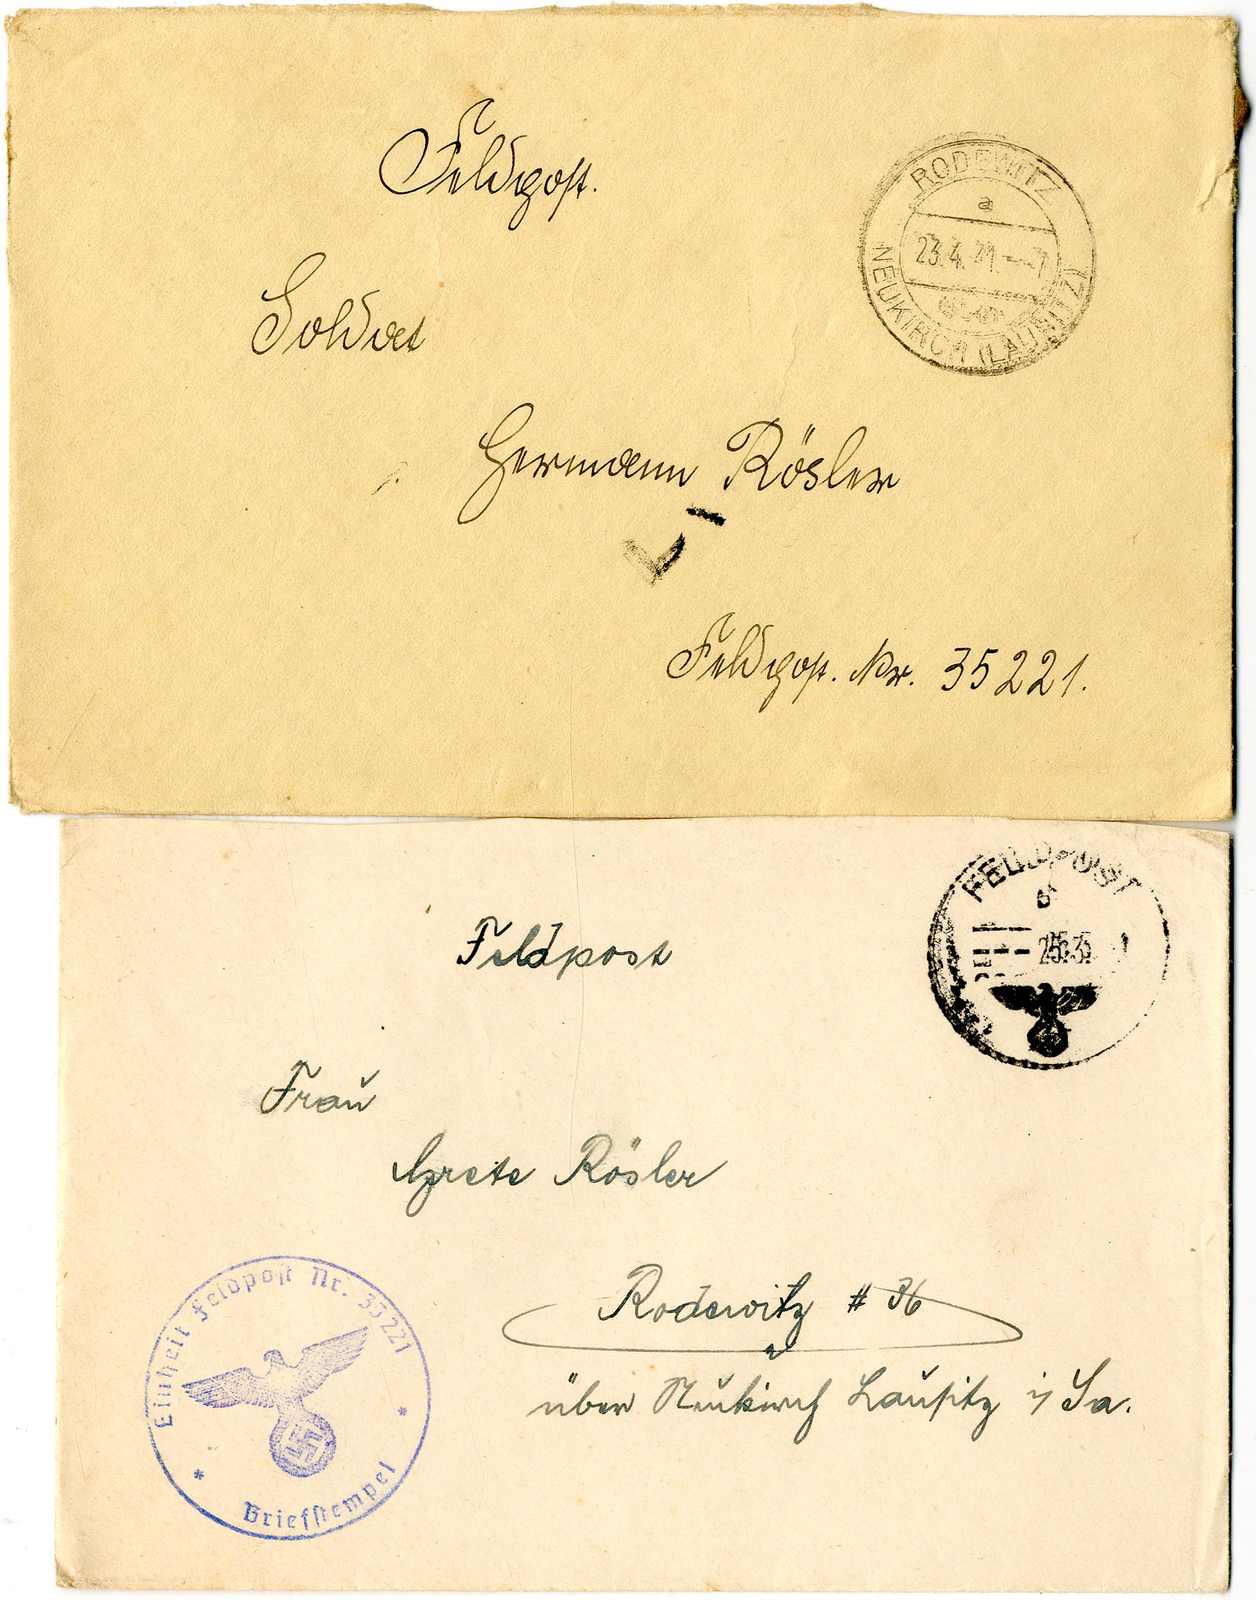 Feldpost.
RODEWITZ
a
23.4.41.--7
über
NEUKIRCH (LAUSITZ)
Soldat
Hermann Rösler
Feldpost. Nr. 35221.
FELDPOST
25.3.
Feldpost
Frau
Grete Rösler
Rodewitz # 36
über Neukirch Lausitz i/ Sa.
Einheit Feldpost Nr. 35221
* Briefstempel *